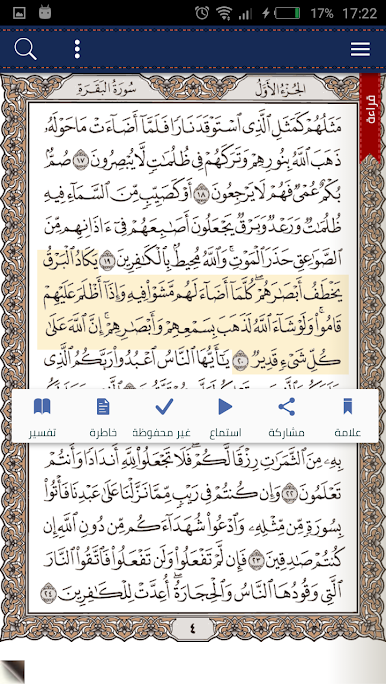 17% 17:22
سُورَةُ البَقَرَةِ
الجُزْءُ الأَوَّلُ
قراءة
مَثَلُهُمْ كَمَثَلِ الَّذِي اسْتَوْقَدَ نَارًا فَلَمَّا أَضَاءَتْ مَا حَوْلَهُ
ذَهَبَ اللَّهُ بِنُورِهِمْ وَتَرَكَهُمْ فِي ظُلُمَاتٍ لَّا يُبْصِرُونَ ١٧ صُمٌّ
بُكْمٌ عُمْيٌ فَهُمْ لَا يَرْجِعُونَ ١٨ أَوْ كَصَيِّبٍ مِّنَ السَّمَاءِ فِيهِ
ظُلُمَاتٌ وَرَعْدٌ وَبَرْقٌ يَجْعَلُونَ أَصَابِعَهُمْ فِي ءَاذَانِهِم مِّنَ
الصَّوَاعِقِ حَذَرَ الْمَوْتِ ۚ وَاللَّهُ مُحِيطٌ بِالْكَافِرِينَ ١٩ يَكَادُ الْبَرْقُ
يَخْطَفُ أَبْصَارَهُمْ ۖ كُلَّمَا أَضَاءَ لَهُم مَّشَوْا فِيهِ وَإِذَا أَظْلَمَ عَلَيْهِمْ
قَامُوا ۚ وَلَوْ شَاءَ اللَّهُ لَذَهَبَ بِسَمْعِهِمْ وَأَبْصَارِهِمْ ۚ إِنَّ اللَّهَ عَلَىٰ
كُلِّ شَيْءٍ قَدِيرٌ ٢٠ يَا أَيُّهَا النَّاسُ اعْبُدُوا رَبَّكُمُ الَّذِي
علامة
مشاركة
استماع
غير محفوظة
خاطرة
تفسير
بِهِ مِنَ الثَّمَرَاتِ رِزْقًا لَّكُمْ ۖ فَلَا تَجْعَلُوا لِلَّهِ أَندَادًا وَأَنتُمْ
تَعْلَمُونَ ٢٢ وَإِن كُنتُمْ فِي رَيْبٍ مِّمَّا نَزَّلْنَا عَلَىٰ عَبْدِنَا فَأْتُوا
بِسُورَةٍ مِّن مِّثْلِهِ وَادْعُوا شُهَدَاءَكُم مِّن دُونِ اللَّهِ إِن
كُنتُمْ صَادِقِينَ ٢٣ فَإِن لَّمْ تَفْعَلُوا وَلَن تَفْعَلُوا فَاتَّقُوا النَّارَ
الَّتِي وَقُودُهَا النَّاسُ وَالْحِجَارَةُ ۖ أُعِدَّتْ لِلْكَافِرِينَ ٢٤
٤